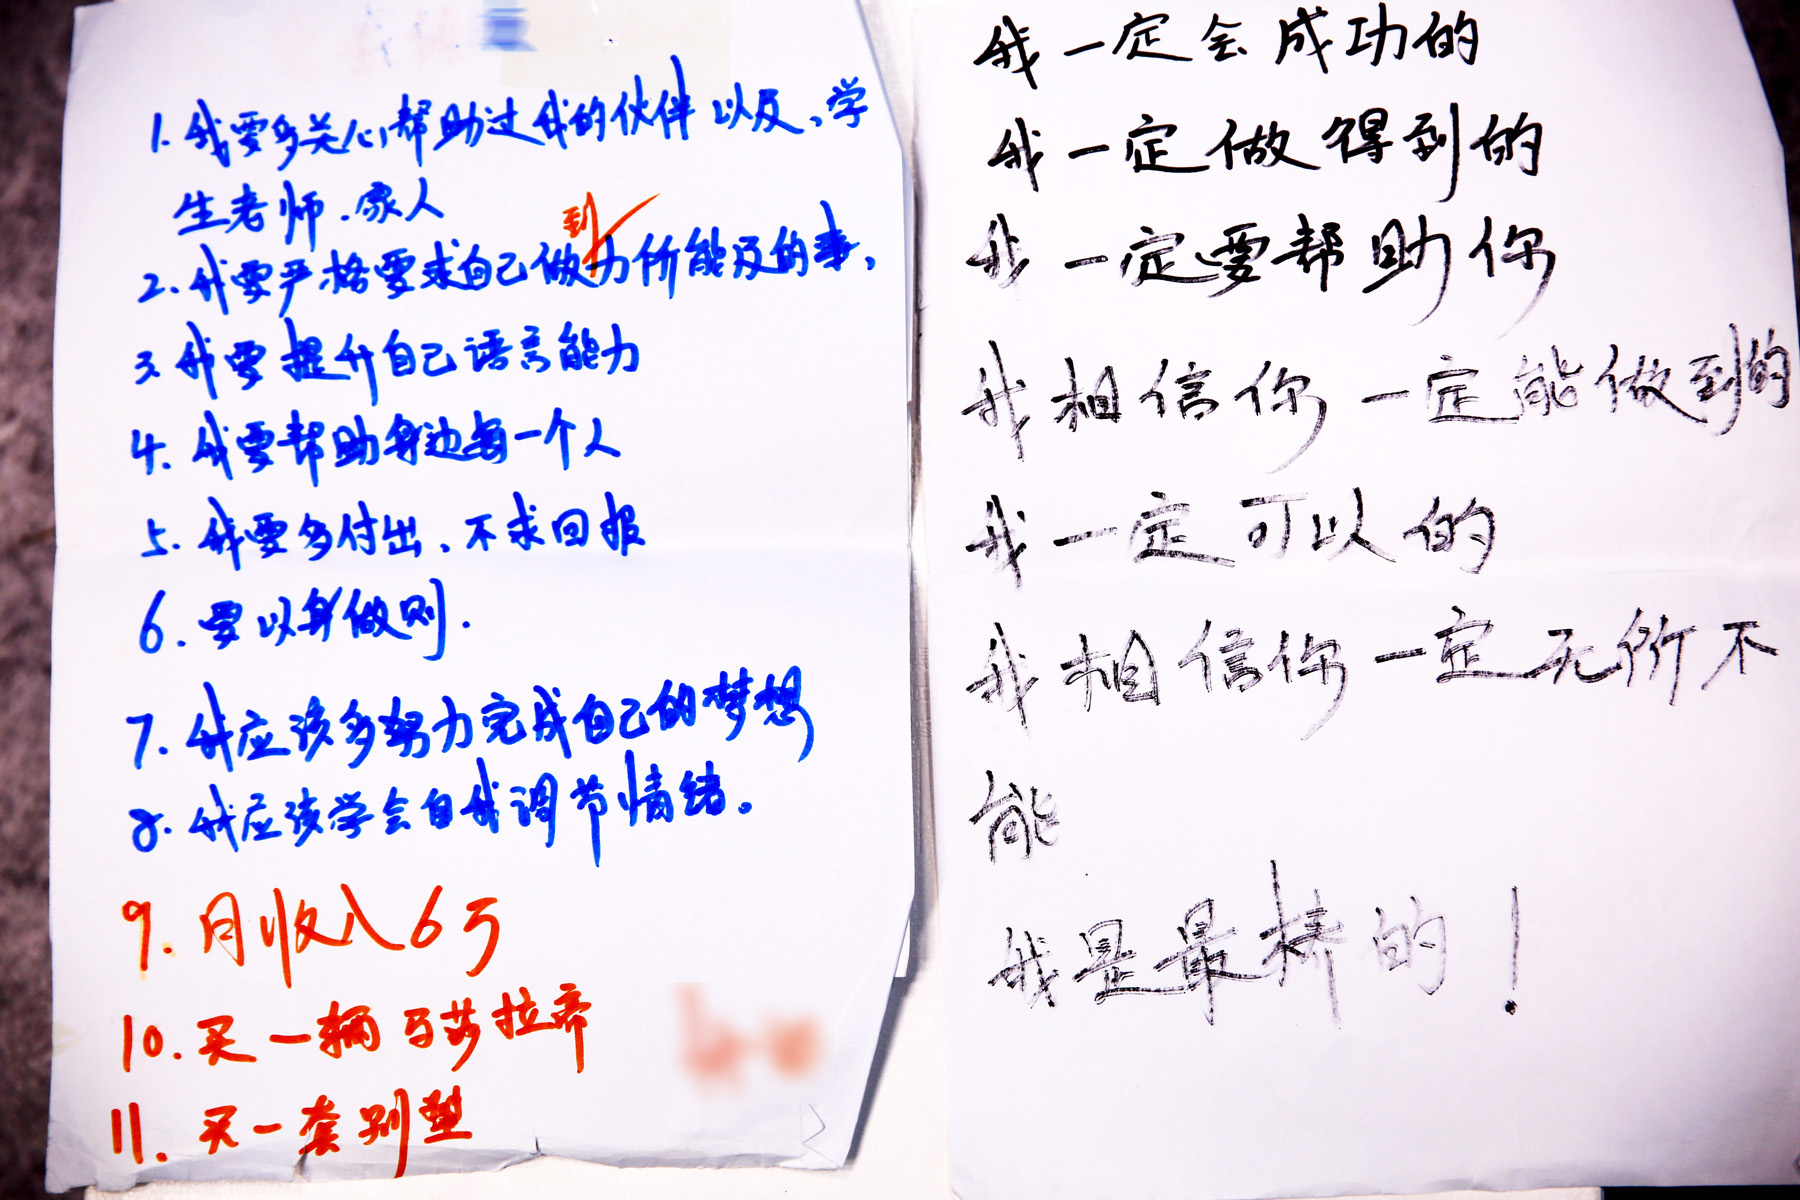 1. 我要多关心帮助过我的伙伴以及、学
生老师.家人
2. 我要严格要求自己做到力所能及的事,
3. 我要提升自己语言能力
4. 我要帮助身边每一个人
5. 我要多付出、不求回报
6. 要以身做则.
7. 我应该多努力完成自己的梦想
8. 我应该学会自我调节情绪。
9. 月收入6万
10. 买一辆马莎拉帝
11. 买一套别墅
我一定会成功的
我一定做得到的
我一定要帮助你
我相信你一定能做到的
我一定可以的
我相信你一定无所不
能
我是最棒的!